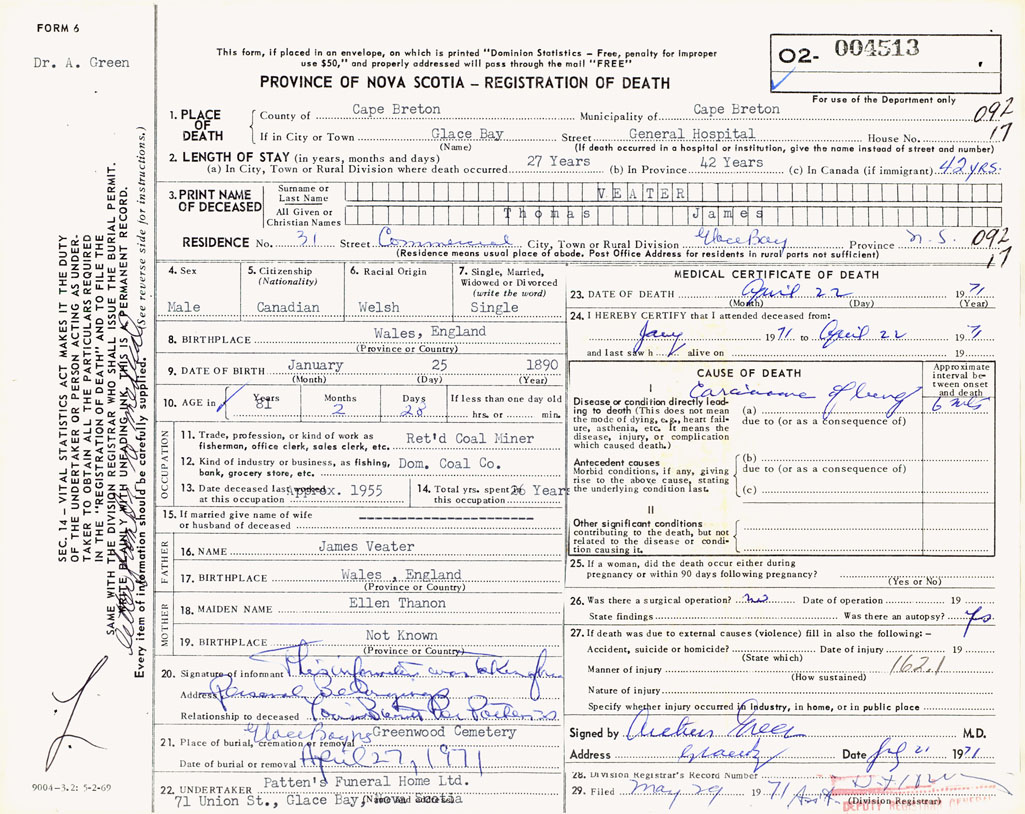 FORM 6
Dr. A. Green
This form, if placed in an envelope, on which is printed "Dominion Statistics – Free, penalty for improper
use $50," and properly addressed will pass through the mail "FREE"
PROVINCE OF NOVA SCOTIA – REGISTRATION OF DEATH
O2- 004513
For use of the Department only
1. PLACE OF DEATH
County of Cape Breton Municipality of Cape Breton 092
If in City or Town Glace Bay Street General Hospital House No. 17
(Name) (If death occurred in a hospital or institution, give the name instead of street and number)
2. LENGTH OF STAY (in years, months and days)
(a) In City, Town or Rural Division where death occurred 27 Years (b) In Province 42 Years (c) In Canada (if immigrant) 42 YRS.
3. PRINT NAME OF DECEASED
Surname or Last Name VEATER
All Given or Christian Names Thomas James
RESIDENCE No. 31 Street Commercial City, Town or Rural Division Glace Bay Province N.S. 092
(Residence means usual place of abode. Post Office Address for residents in rural parts not sufficient) 17
4. Sex
Male
5. Citizenship
(Nationality)
Canadian
6. Racial Origin
Welsh
7. Single, Married,
Widowed or Divorced
(write the word)
Single
8. BIRTHPLACE Wales, England
(Province or Country)
9. DATE OF BIRTH January 25 1890
(Month) (Day) (Year)
10. AGE in Years Months Days If less than one day old
81 2 28 hrs. or min.
OCCUPATION
11. Trade, profession, or kind of work as
fisherman, office clerk, sales clerk, etc. Ret'd Coal Miner
12. Kind of industry or business, as fishing,
bank, grocery store, etc. Dom. Coal Co.
13. Date deceased last worked
at this occupation Approx. 1955
14. Total yrs. spent in
this occupation 26 Years
15. If married give name of wife
or husband of deceased
FATHER
16. NAME James Veater
17. BIRTHPLACE Wales , England
(Province or Country)
MOTHER
18. MAIDEN NAME Ellen Thanon
19. BIRTHPLACE Not Known
(Province or Country)
20. Signature of informant
Address
Relationship to deceased
21. Place of burial, cremation or removal Glace Bay NS Greenwood Cemetery
Date of burial or removal April 27, 1971
22. UNDERTAKER Patten's Funeral Home Ltd.
71 Union St., Glace Bay, Nova Scotia
MEDICAL CERTIFICATE OF DEATH
23. DATE OF DEATH April 22 1971
(Month) (Day) (Year)
24. I HEREBY CERTIFY that I attended deceased from:
Jany 1971 to April 22 1971
and last saw h alive on 19
CAUSE OF DEATH
Approximate
interval be-
tween onset
and death
I
Disease or condition directly lead-
ing to death (This does not mean
the mode of dying, e.g., heart fail-
ure, asthenia, etc. It means the
disease, injury, or complication
which caused death.)
(a) Carcinoma of lung 6 mts
due to (or as a consequence of)
Antecedent causes
Morbid conditions, if any, giving
rise to the above cause, stating
the underlying condition last.
(b)
due to (or as a consequence of)
(c)
II
Other significant conditions
contributing to the death, but not
related to the disease or condi-
tion causing it.
25. If a woman, did the death occur either during
pregnancy or within 90 days following pregnancy?
(Yes or No)
26. Was there a surgical operation? no Date of operation 19
State findings Was there an autopsy? Yes
27. If death was due to external causes (violence) fill in also the following: –
Accident, suicide or homicide? Date of injury 19
(State which)
Manner of injury 162.1
(How sustained)
Nature of injury
Specify whether injury occurred in industry, in home, or in public place
Signed by Arthur Green M.D.
Address Date 21 1971
28. Division Registrar's Record Number
29. Filed May 29 1971
(Division Registrar)
DEPUTY REGISTRAR GENERAL
SEC. 14 – VITAL STATISTICS ACT MAKES IT THE DUTY
OF THE UNDERTAKER OR PERSON ACTING AS UNDER-
TAKER TO OBTAIN ALL THE PARTICULARS REQUIRED
IN THE "REGISTRATION OF DEATH" AND TO FILE THE
SAME WITH THE DIVISION REGISTRAR WHO SHALL ISSUE THE BURIAL PERMIT.
WRITE PLAINLY WITH UNFADING INK. THIS IS A PERMANENT RECORD.
Every item of information should be carefully supplied. (See reverse side for instructions.)
9004–3.2: 5-2-69